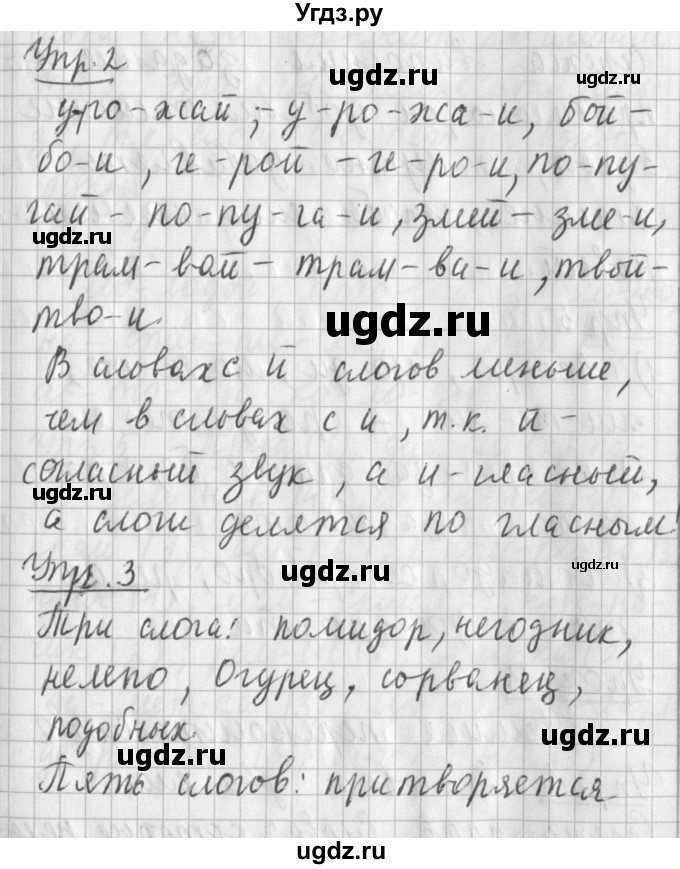 Угдз.ру
Упр. 2
у-ро-жай,- у-ро-жа-и, бой-
бо-и, ге-рой - ге-ро-и, по-пу-
гай - по-пу-га-и, змей - зме-и,
ugdz.ru ugdz.ru
трам-вай - трам-ва-и, твой-
тво-и.
ugdz.ru
В словах с й слогов меньше,
чем в словах с и, т.к. й -
согласный звук, а и - гласный,
ugdz.ru
а слоги делятся по гласным!
Упр. 3
ugdz.ru ugdz.ru
Три слога: помидор, негодник,
нелепо, Огурец, сорванец,
подобных.
ugdz.ru ugdz.ru
Пять слогов: притворяется
ugdz.ru